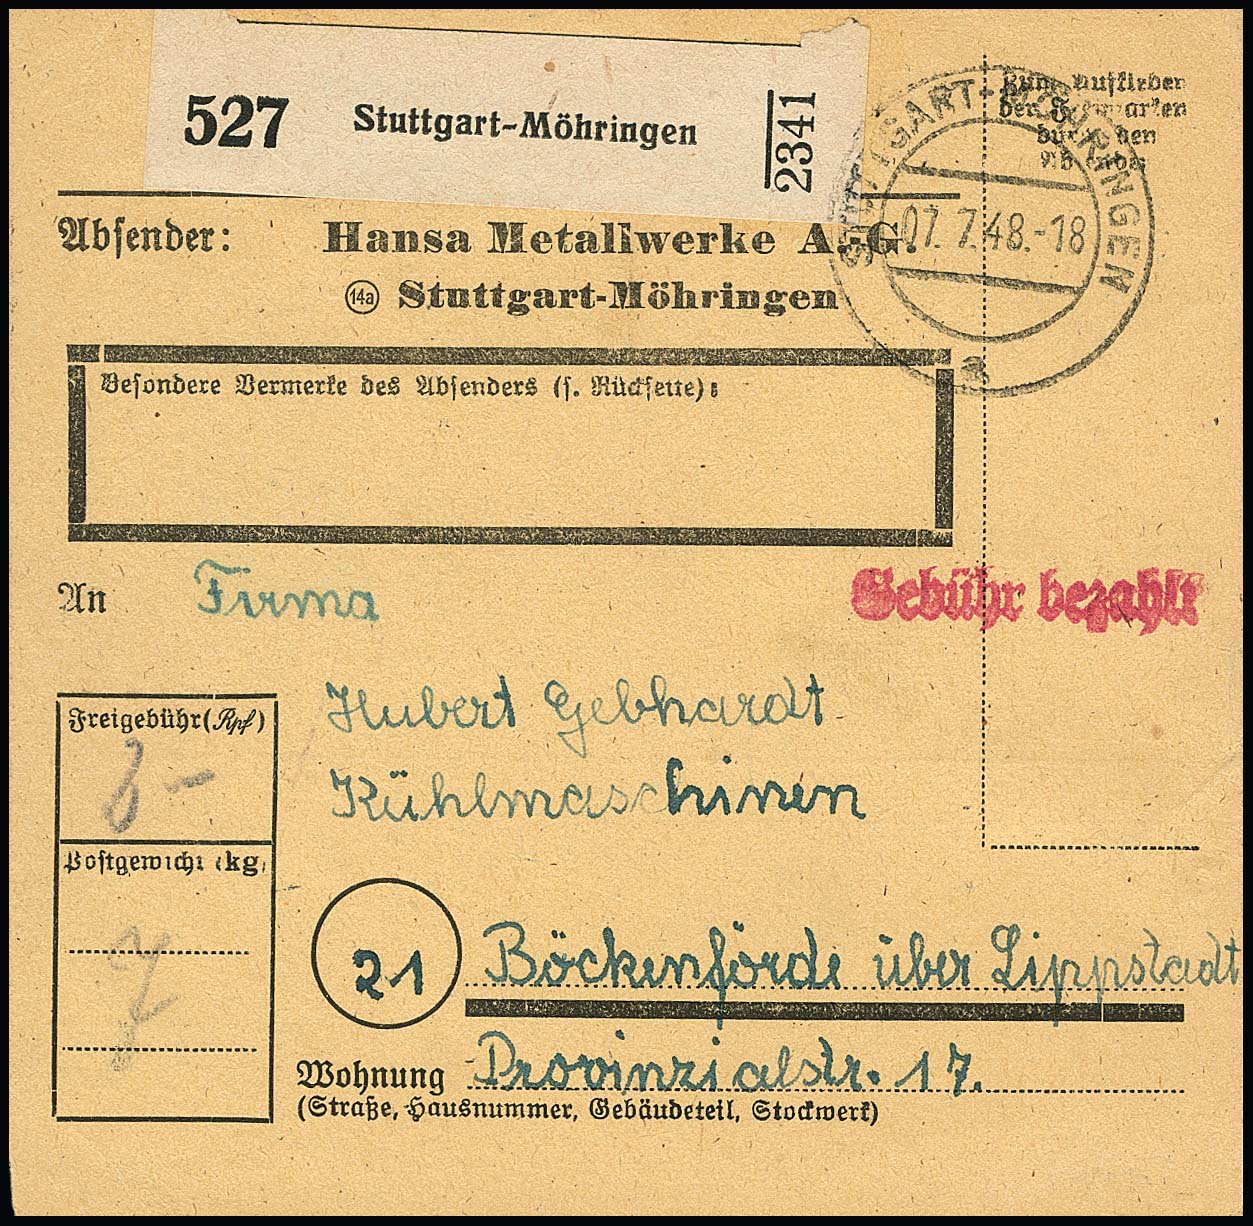 527 Stuttgart-Möhringen 2341
Zum Aufkleben
der Freimarken
durch den
Absender
STUTTGART-MÖHRINGEN
07.7.48.-18
a
Absender: Hansa Metallwerke A.-G.
(14a) Stuttgart-Möhringen
Besondere Vermerke des Absenders (s. Rückseite):
An Firma
Gebühr bezahlt
Hubert Gebhardt
Kühlmaschinen
Freigebühr (Rpf)
Postgewicht (kg)
21 Böckenförde über Lippstadt
Wohnung Provinzialstr. 17.
(Straße, Hausnummer, Gebäudeteil, Stockwerk)